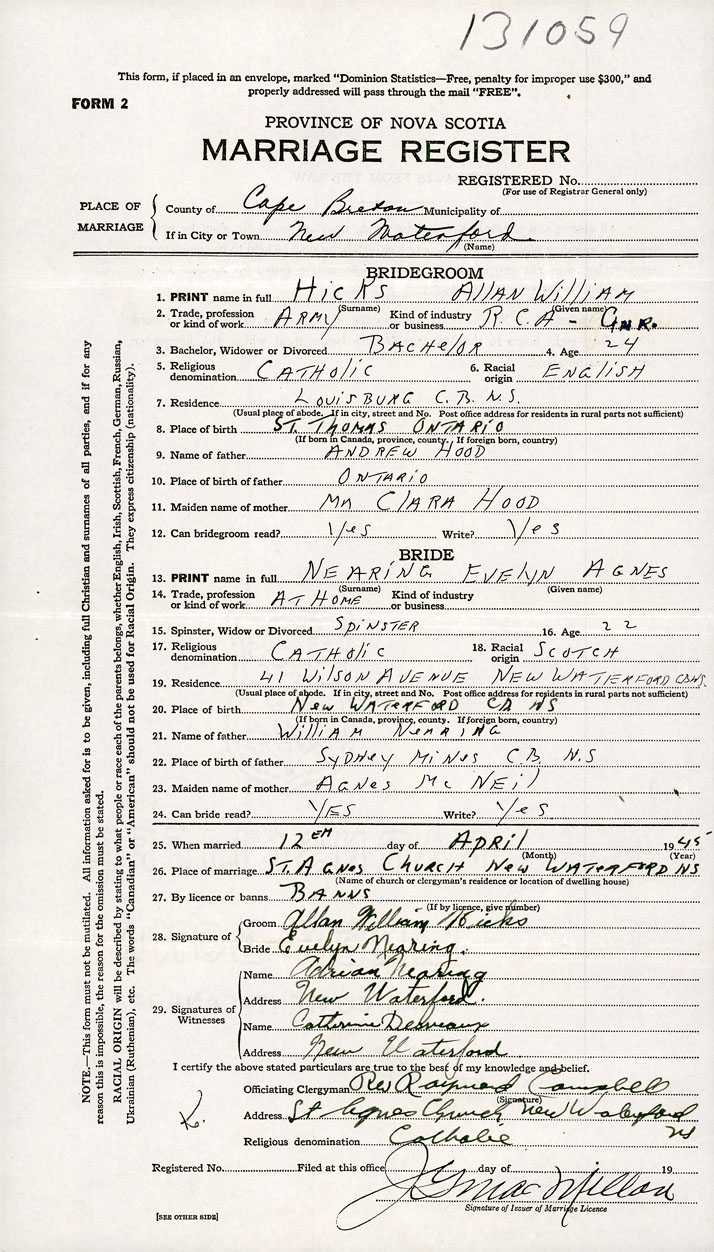 131059
This form, if placed in an envelope, marked "Dominion Statistics—Free, penalty for improper use $300," and
properly addressed will pass through the mail "FREE".
FORM 2
PROVINCE OF NOVA SCOTIA
MARRIAGE REGISTER
REGISTERED No.
(For use of Registrar General only)
PLACE OF MARRIAGE
County of Cape Breton Municipality of
If in City or Town New Waterford
(Name)
BRIDEGROOM
1. PRINT name in full HICKS ALLAN WILLIAM
(Surname) (Given name)
2. Trade, profession or kind of work ARMY Kind of industry or business R.C.A - GNR.
3. Bachelor, Widower or Divorced BACHELOR 4. Age 24
5. Religious denomination CATHOLIC 6. Racial origin ENGLISH
7. Residence LOUISBURG C.B. N.S.
(Usual place of abode. If in city, street and No. Post office address for residents in rural parts not sufficient)
8. Place of birth ST. THOMAS ONTARIO
(If born in Canada, province, county. If foreign born, country)
9. Name of father ANDREW HOOD
10. Place of birth of father ONTARIO
11. Maiden name of mother CLARA HOOD
12. Can bridegroom read? Yes Write? Yes
BRIDE
13. PRINT name in full NEARING EVELYN AGNES
(Surname) (Given name)
14. Trade, profession or kind of work AT HOME Kind of industry or business
15. Spinster, Widow or Divorced SPINSTER 16. Age 22
17. Religious denomination CATHOLIC 18. Racial origin SCOTCH
19. Residence 41 WILSON AVENUE NEW WATERFORD CBNS.
(Usual place of abode. If in city, street and No. Post office address for residents in rural parts not sufficient)
20. Place of birth NEW WATERFORD CB NS
(If born in Canada, province, county. If foreign born, country)
21. Name of father WILLIAM NEARING
22. Place of birth of father SYDNEY MINES C.B. N.S
23. Maiden name of mother AGNES McNEIL
24. Can bride read? YES Write? Yes
25. When married 12 day of APRIL 1945
(Month) (Year)
26. Place of marriage ST. AGNES CHURCH NEW WATERFORD NS
(Name of church or clergyman's residence or location of dwelling house)
27. By licence or banns BANNS
(If by licence, give number)
28. Signature of
Groom Allan William Hicks
Bride Evelyn Nearing.
29. Signatures of Witnesses
Name Adrian Nearing
Address New Waterford.
Name Catherine Desveaux
Address New Waterford
I certify the above stated particulars are true to the best of my knowledge and belief.
Officiating Clergyman Rev Raymond Campbell
(Signature)
Address St Agnes Church, New Waterford
NS
Religious denomination Catholic
Registered No. Filed at this office day of 19
J G MacMillan
Signature of Issuer of Marriage Licence
[SEE OTHER SIDE]
NOTE.—This form must not be mutilated. All information asked for is to be given, including full Christian and surnames of all parties, and if for any
reason this is impossible, the reason for the omission must be stated.
RACIAL ORIGIN will be described by stating to what people or race each of the parents belongs, whether English, Irish, Scottish, French, German, Russian,
Ukrainian (Ruthenian), etc. The words "Canadian" or "American" should not be used for Racial Origin. They express citizenship (nationality).